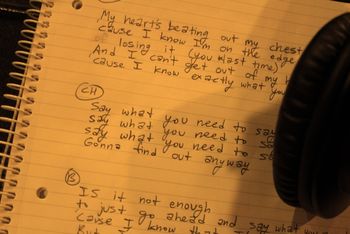 My heart's beating out my chest
cause I know I'm on the edge
losing it (you last time)
And I can't get out of my
cause I know exactly what you
CH
Say what you need to say
say what you need to
say what you need to
Gonna find out anyway
B
Is it not enough
to just go ahead and say what
cause I know that
But I